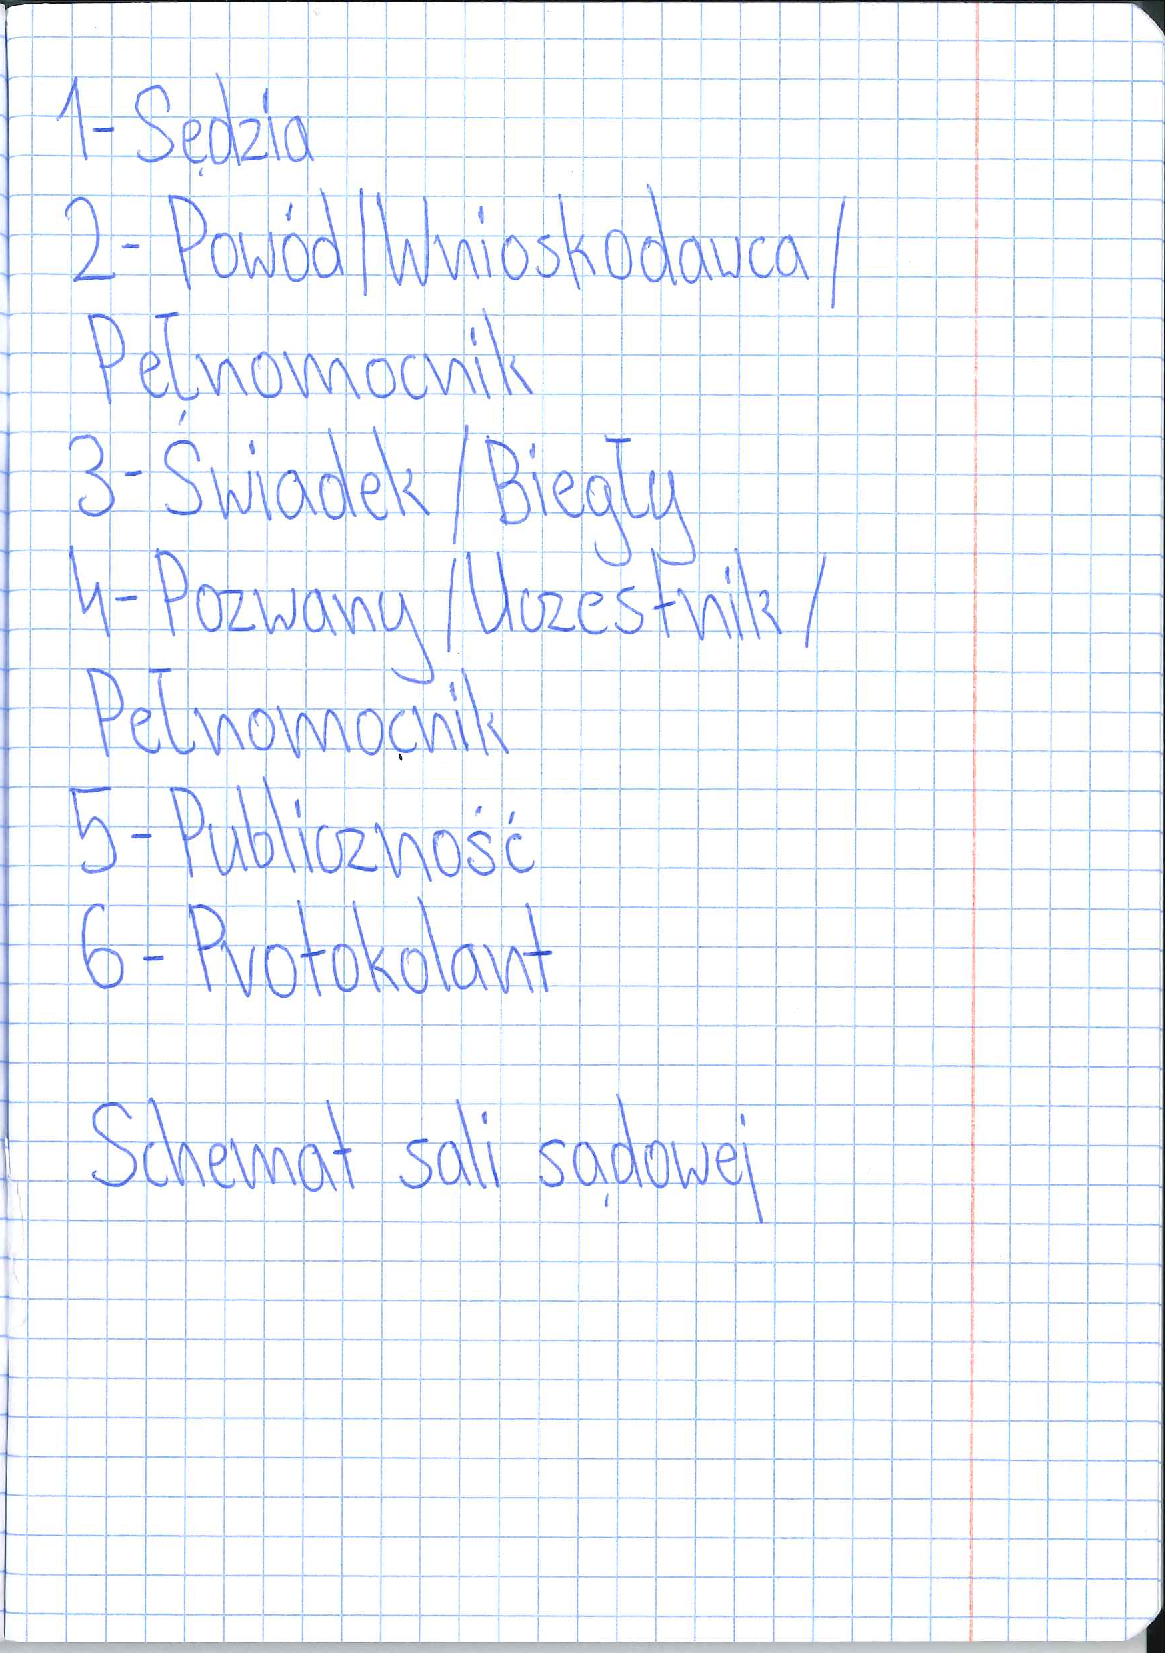 1- Sędzia
2- Powód/Wnioskodawca/
Pełnomocnik
3- Świadek/Biegły
4- Pozwany/Uczestnik/
Pełnomocnik
5- Publiczność
6- Protokolant
Schemat sali sądowej